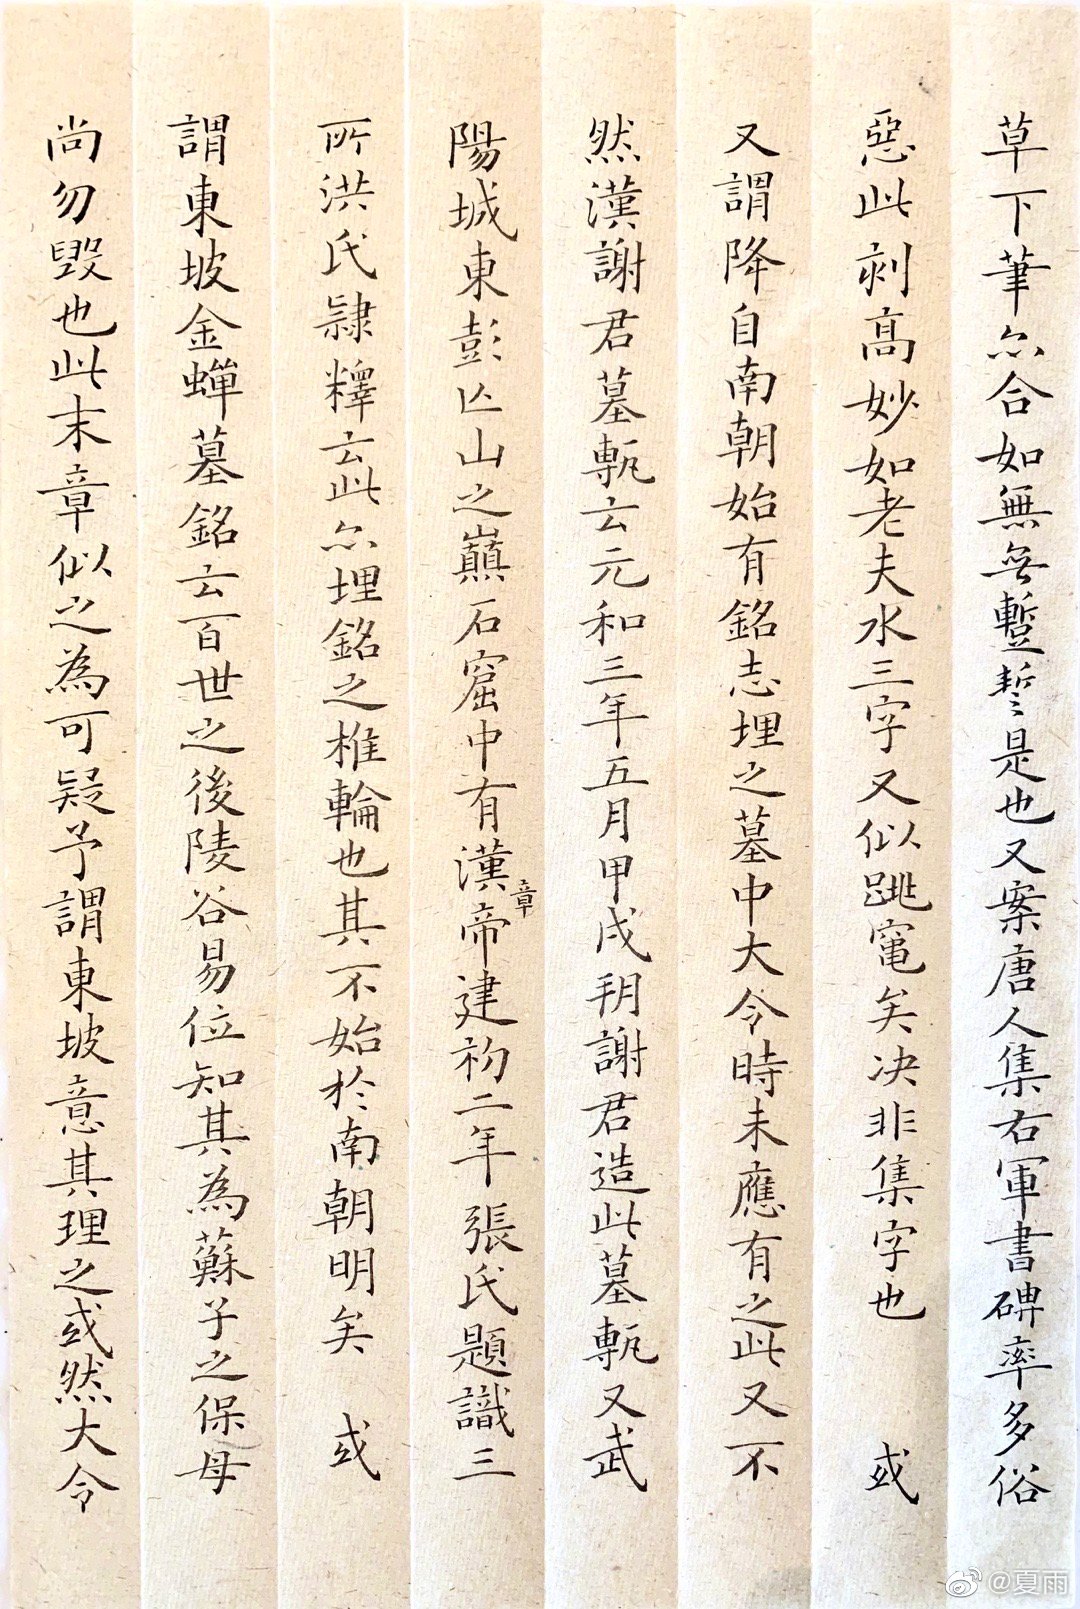 草下筆亦合如無无蹔誓是也又案唐人集右軍書碑率多俗
惡此刻高妙如老夫水三字又似跳竃矣決非集字也 或
又謂降自南朝始有銘志埋之墓中大令時未應有之此又不
然漢謝君墓甎云元和三年五月甲戌朔謝君造此墓甎又武
陽城東彭亾山之巔石窟中有漢章帝建初二年張氏題識三
所洪氏隸釋云此亦埋銘之椎輪也其不始於南朝明矣 或
謂東坡金蟬墓銘云百世之後陵谷易位知其為蘇子之保母
尚勿毀也此末章似之為可疑予謂東坡意其理之或然大令
@夏雨